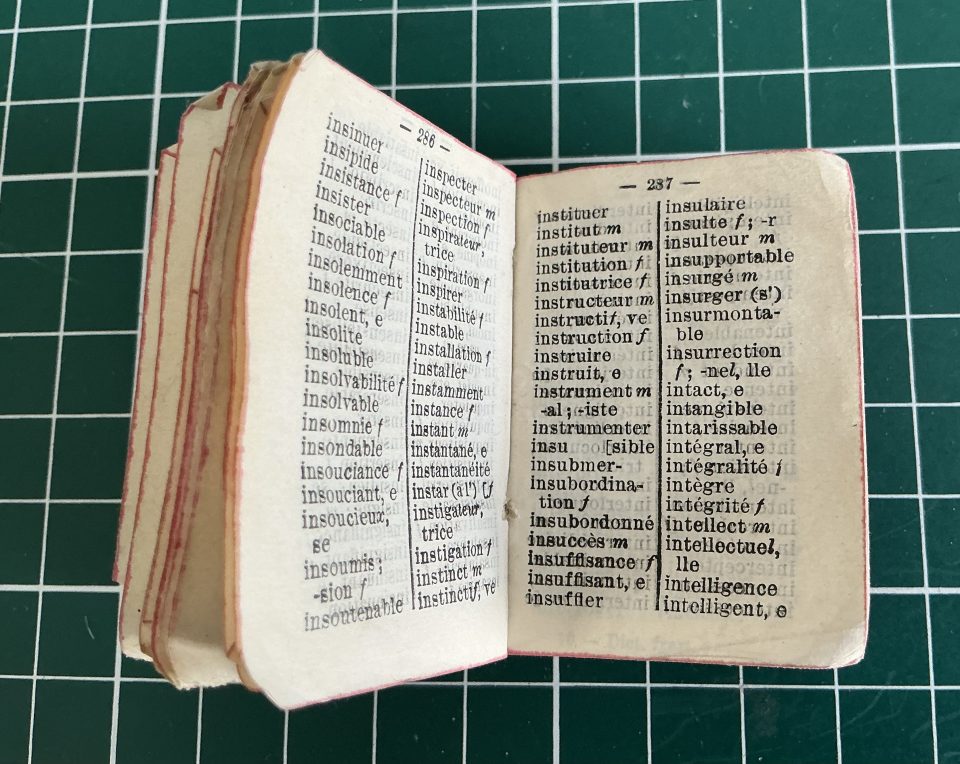 — 286 —
insinuer
insipide
insistance f
insister
insociable
insolation f
insolemment
insolence f
insolent, e
insolite
insoluble
insolvabilité f
insolvable
insomnie f
insondable
insouciance f
insouciant, e
insoucieux,
se
insoumis ;
-sion f
insoutenable
inspecter
inspecteur m
inspection f
inspirateur,
trice
inspiration f
inspirer
instabilité f
instable
installation f
installer
instamment
instance f
instant m
instantané, e
instantanéité
instar (à l') [f
instigateur,
trice
instigation f
instinct m
instinctif, ve
— 287 —
instituer
institut m
instituteur m
institution f
institutrice f
instructeur m
instructif, ve
instruction f
instruire
instruit, e
instrument m
-al ; -iste
instrumenter
insu [sible
insubmer-
insubordina-
tion f
insubordonné
insuccès m
insuffisance f
insuffisant, e
insuffler
insulaire
insulte f ; -r
insulteur m
insupportable
insurgé m
insurger (s')
insurmonta-
ble
insurrection
f ; -nel, lle
intact, e
intangible
intarissable
intégral, e
intégralité f
intègre
intégrité f
intellect m
intellectuel,
lle
intelligence
intelligent, e